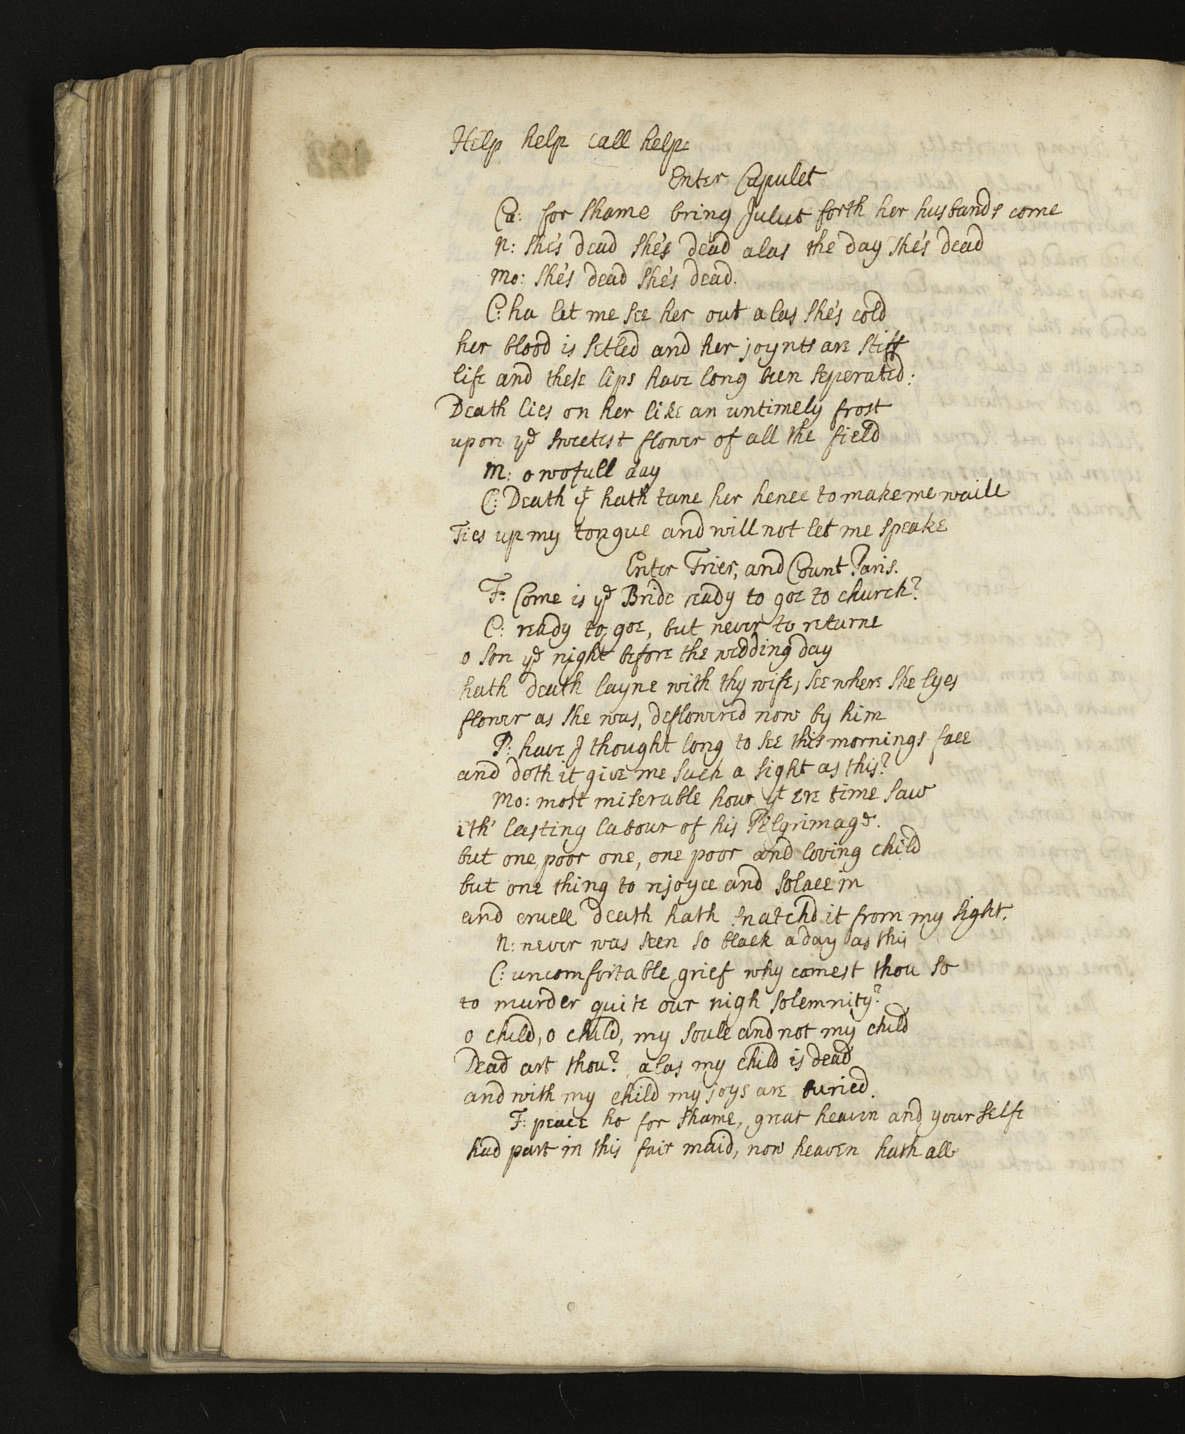 Help help call help:
Enter Capulet
Ca: for shame bring Juliet forth her husbands come
N: she's dead she's dead alas the day she's dead
Mo: she's dead she's dead.
C: ha let me see her out alas she's cold
her blood is setled and her joynts are stiff
life and these lips have long been seperated:
Death lies on her like an untimely frost
upon ye sweetest flower of all the field
M: o wofull day
C: Death yt hath tane her hence to make me waile
Ties up my tongue and will not let me speake
Enter Frier, and Count Paris.
F: Come is ye Bride ready to goe to church?
C: ready to goe, but never to returne
o son ye night before the wedding day
hath death layne with thy wife, see where she lyes
flower as she was, deflowered now by him
P: have I thought long to see this mornings face
and doth it give me such a sight as this?
Mo: most miserable hour yt ere time saw
ith' lasting labour of his Pilgrimage.
but one poor one, one poor and loving child
but one thing to rejoyce and solace in
and cruell death hath snatchd it from my sight.
N: never was seen so black a day as this
C: uncomfortable grief why camest thou so
to murder quite our nigh solemnity?
o child, o child, my soule and not my child
Dead art thou? alas my child is dead
and with my child my joys are buried.
F: peace ho for shame, great heaven and your selfe
had part in this fair maid, now heaven hath all